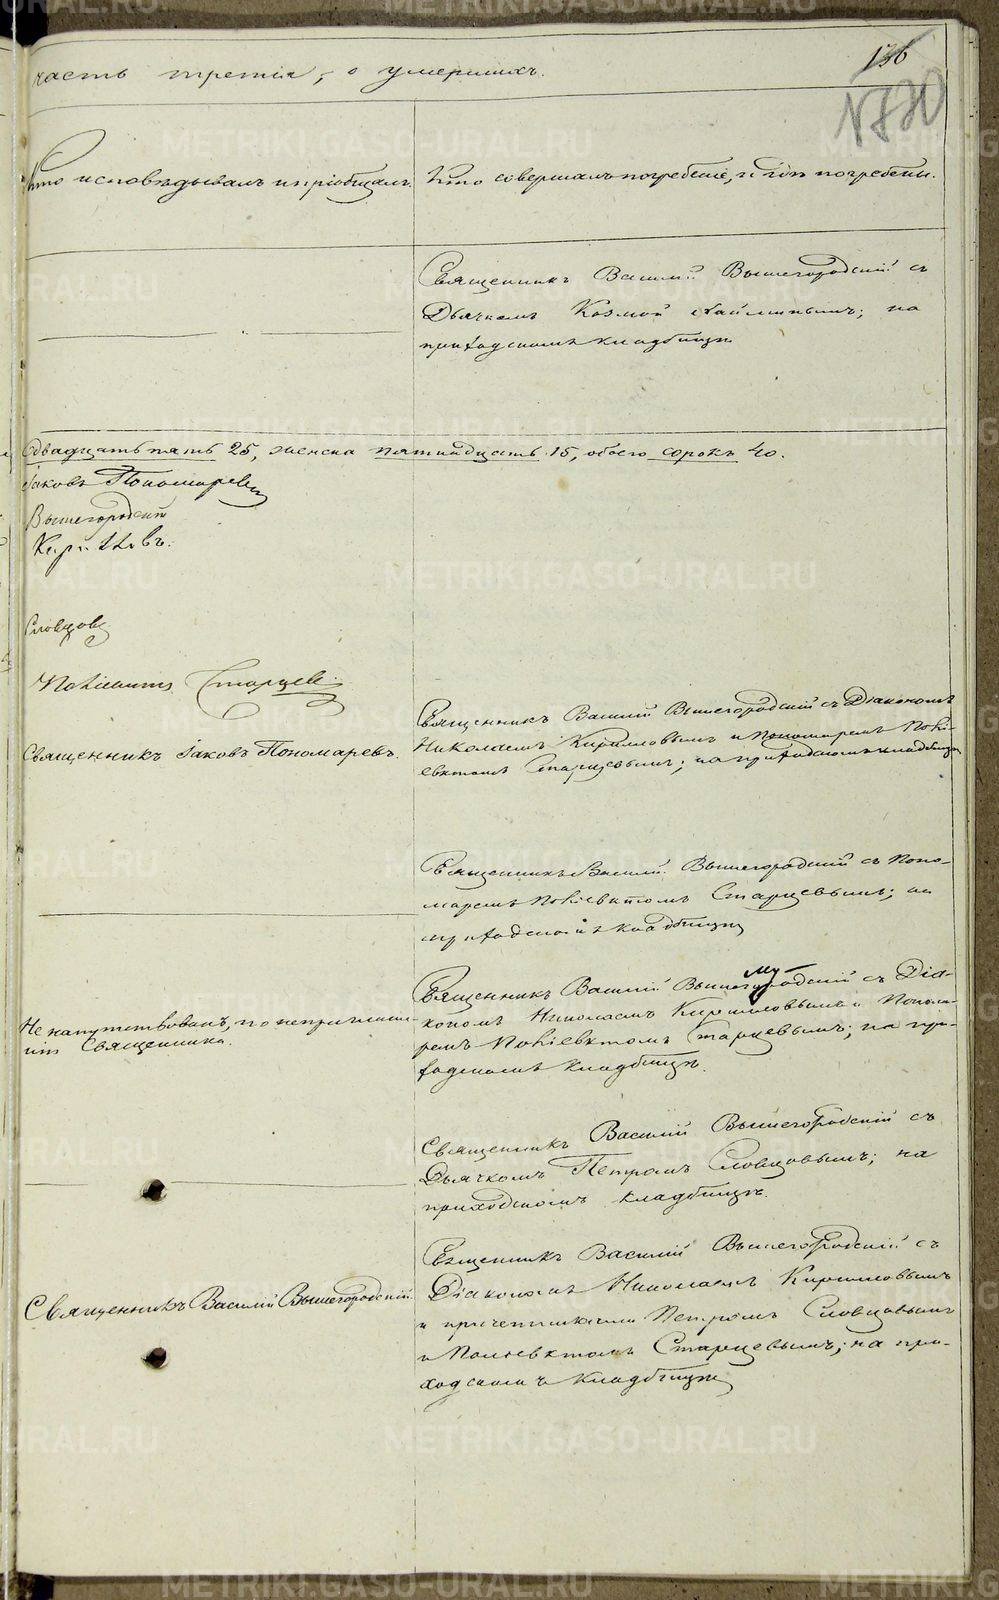 часть третія, о умершихъ.
136
N 720
Кто исповѣдывалъ и пріобщалъ.
Кто совершалъ погребеніе, и гдѣ погребены.
Священникъ Василій Вышегородскій съ
Дьячкомъ Козмой; на
приходскомъ кладбищѣ
двадцать пять 25, женска пятнадцать 15, обоего сорокъ 40.
Іаковъ Пономаревъ
Вышегородскій
Кирилловъ.
Словцовъ
Поліевктъ Старцевъ.
Священникъ Василій Вышегородскій съ Діакономъ
Николаемъ Кирилловымъ и Пономаремъ Полі-
евктомъ Старцевымъ; на приходскомъ кладбищѣ
Священникъ Іаковъ Пономаревъ.
Священникъ Василій Вышегородскій съ Поно-
маремъ Поліевктомъ Старцевымъ; на
приходскомъ кладбищѣ
Священникъ Василій Вышегородскій съ Діа-
кономъ Николаемъ Кирилловымъ и Понома-
ремъ Поліевктомъ Старцевымъ; на при-
ходскомъ кладбищѣ.
Не напутствованъ, по непризван-
ію Священника.
Священникъ Василій Вышегородскій съ
Дьячкомъ Петромъ Словцовымъ; на
приходскомъ кладбищѣ.
Священникъ Василій Вышегородскій съ
Діакономъ Николаемъ Кирилловымъ
и причетниками Петромъ Словцовымъ
и Поліевктомъ Старцевымъ; на при-
ходскомъ кладбищѣ
Священникъ Василій Вышегородскій.
METRIKI.GASO-URAL.RU